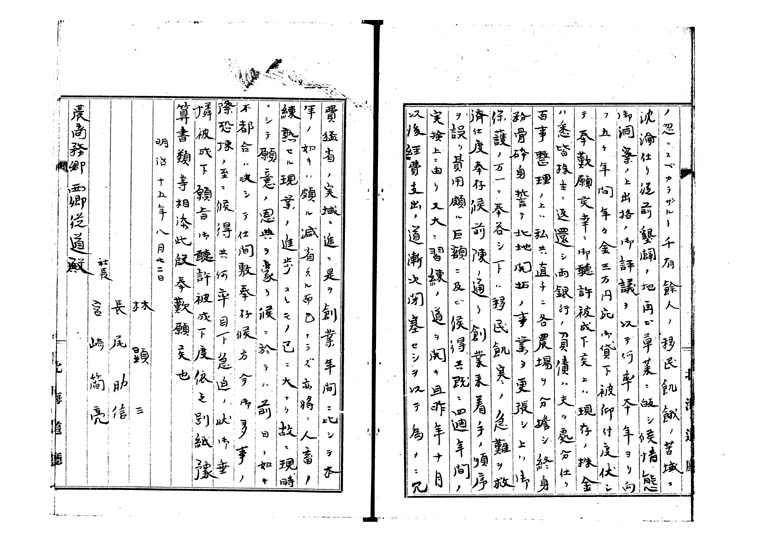 ノ忍ニスベカラザル千有餘人ノ移民飢餓ノ苦域ニ
沈淪仕リ従前墾闢ノ地再ビ草莱ニ皈シ候情態
御洞察ノ上出格ノ御評議ヲ以テ何卒本年ヨリ向
フ五ケ年間年々金三万円宛御貸下被仰付度伏シ
テ奉歎願候幸ニ御聴許被成下候上ハ現存ノ株金
ハ悉皆株主ニ返還シ両銀行ノ負債ハ夫々處分仕リ
百事整理ノ上ハ私共直チニ各農場ヲ分擔シ終身
粉骨砕身誓テ北地開拓ノ事業ヲ更張シ上ハ御
保護ノ万一ヲ奉答シ下ハ移民飢寒ノ急難ヲ救
済仕度奉存候前陳ノ通リ創業来着手ノ順序
ヲ誤リ費用頗ル巨額ニ及ビ候得共既ニ四週年間ノ
実検上ニ由リ又大ニ習練ノ道ヲ開キ且昨年十月
以後経費支出ノ道漸次閉塞セシヲ以テ為メニ冗
費猛省ノ実域ニ進ミ是ヲ創業年間ニ比シテ本
年ノ如キハ頗ル減省スル而已ナラズ亦将ニ人畜ノ
練熟セル現業ノ進歩ハスルモノ已ニ大ナリ故ニ現時
ニシテ願意ノ恩典ヲ蒙リ候ニ於テハ前日ノ如キ
不都合ハ決シテ仕間敷奉存候方今御多事ノ
際恐悚ノ至ニ候得共何卒目下急迫ノ状御垂
憐被成下願旨御聴許被成下度依之別紙豫
算書類等相添此段奉歎願候也
明治十五年八月廿二日
林顕三
長尾助信
社長
宮崎簡亮
農商務卿西郷従道殿
北海道廳
北海道廳